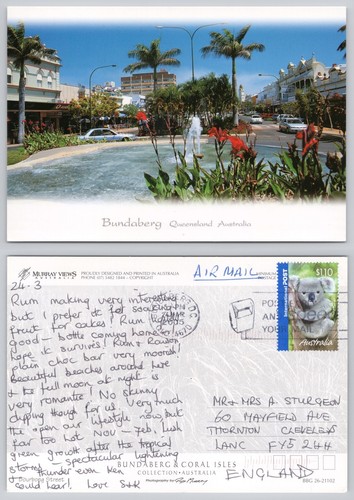 Bundaberg Queensland Australia
MURRAY VIEWS
AUSTRALIA
PROUDLY DESIGNED AND PRINTED IN AUSTRALIA
24-3
AIR MAIL
Rum making very interesting
but I prefer it for soaking
fruit for cakes! Rum
good - bottle coming home
hope it survives! Rum & Raison
plain choc bar very moorish!
Beautiful beaches around here
& the full moon at night is
very romantic. No skinny
dipping though for us. Very much
the open air lifestyle now but
far too hot Nov - Feb, lush
green growth after the tropical
storms - spectacular lightning
& thunder even Ken
could hear! Love S&K
International POST
$1.10
Australia
MR & MRS A. STURGEON
60 MAYFIELD AVE
THORNTON CLEVELEYS
LANC FY5 2LH
ENGLAND
BUNDABERG & CORAL ISLES
COLLECTION • AUSTRALIA
Bourbong Street
BBG 26-21102